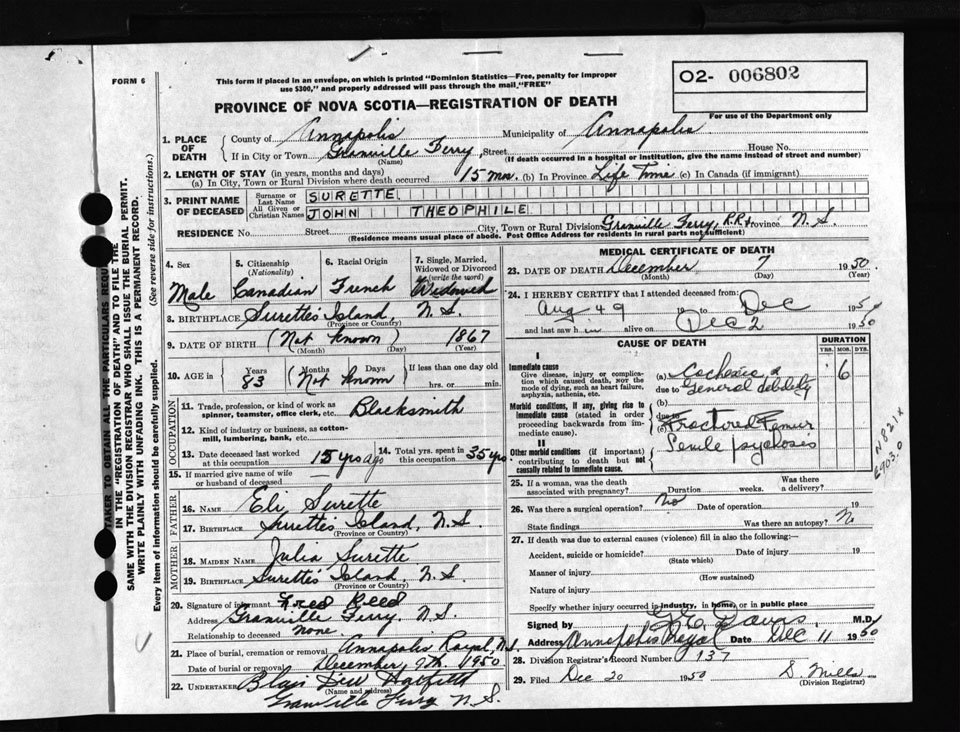 FORM 6
This form if placed in an envelope, on which is printed "Dominion Statistics—Free, penalty for improper
use $300," and properly addressed will pass through the mail, "FREE"
PROVINCE OF NOVA SCOTIA—REGISTRATION OF DEATH
O2- 006802
For use of the Department only
1. PLACE OF DEATH
County of Annapolis Municipality of Annapolis
If in City or Town Granville Ferry, Street House No.
(Name) (If death occurred in a hospital or institution, give the name instead of street and number)
2. LENGTH OF STAY (in years, months and days)
(a) In City, Town or Rural Division where death occurred 15 mos. (b) In Province Life Time (c) In Canada (if immigrant)
3. PRINT NAME OF DECEASED
Surname or Last Name SURETTE
All Given or Christian Names JOHN THEOPHILE
RESIDENCE No. Street City, Town or Rural Division Granville Ferry, R.R.1 Province N.S.
(Residence means usual place of abode. Post Office Address for residents in rural parts not sufficient)
4. Sex
Male
5. Citizenship (Nationality)
Canadian
6. Racial Origin
French
7. Single, Married, Widowed or Divorced (write the word)
Widowed
8. BIRTHPLACE Surette's Island, N.S.
(Province or Country)
9. DATE OF BIRTH (Not known) 1867
(Month) (Day) (Year)
10. AGE in Years 83 Months Days (Not known) If less than one day old
hrs. or min.
OCCUPATION
11. Trade, profession, or kind of work as spinner, teamster, office clerk, etc. Blacksmith
12. Kind of industry or business, as cotton-mill, lumbering, bank, etc.
13. Date deceased last worked at this occupation 15 yrs ago 14. Total yrs. spent in this occupation 35 yrs.
15. If married give name of wife or husband of deceased
FATHER
16. NAME Eli Surette
17. BIRTHPLACE Surette's Island, N.S.
MOTHER
18. MAIDEN NAME Julia Surette
19. BIRTHPLACE Surette's Island, N.S.
(Province or Country)
20. Signature of informant Fred Reed
Address Granville Ferry, N.S.
Relationship to deceased None.
21. Place of burial, cremation or removal Annapolis Royal, N.S.
Date of burial or removal December 9th. 1950
22. Undertaker Blair Hatfield
(Name and address)
Granville Ferry N.S.
MEDICAL CERTIFICATE OF DEATH
23. DATE OF DEATH December 7 1950.
(Month) (Day) (Year)
24. I HEREBY CERTIFY that I attended deceased from:
Aug 49 to Dec 195
and last saw h im alive on Dec 2 1950
CAUSE OF DEATH
DURATION
YRS. MOS. DYS.
I
Immediate cause
Give disease, injury or complication which caused death, NOT the mode of dying, such as heart failure, asphyxia, asthenia, etc.
(a) Cachexia & 6
due to General debility
(b)
Morbid conditions, if any, giving rise to immediate cause (stated in order proceeding backwards from immediate cause).
due to
(c) Fractured Femur
II
Other morbid conditions (if important) contributing to death but not causally related to immediate cause.
Senile psychosis
N 821 x
6903.0
25. If a woman, was the death associated with pregnancy? Duration weeks. Was there a delivery?
26. Was there a surgical operation? No Date of operation 19
State findings Was there an autopsy? No
27. If death was due to external causes (violence) fill in also the following:—
Accident, suicide or homicide? Date of injury 19
(State which)
Manner of injury
(How sustained)
Nature of injury
Specify whether injury occurred in industry, in home, or in public place
Signed by M.D.
Address Annapolis Royal Date Dec 11 1950
28. Division Registrar's Record Number 137
29. Filed Dec 20 1950 S. Mills
(Division Registrar)
TAKER TO OBTAIN ALL THE PARTICULARS REQU
IN THE "REGISTRATION OF DEATH" AND TO FILE THE
SAME WITH THE DIVISION REGISTRAR WHO SHALL ISSUE THE BURIAL PERMIT.
WRITE PLAINLY WITH UNFADING INK. THIS IS A PERMANENT RECORD.
Every item of information should be carefully supplied. (See reverse side for instructions.)